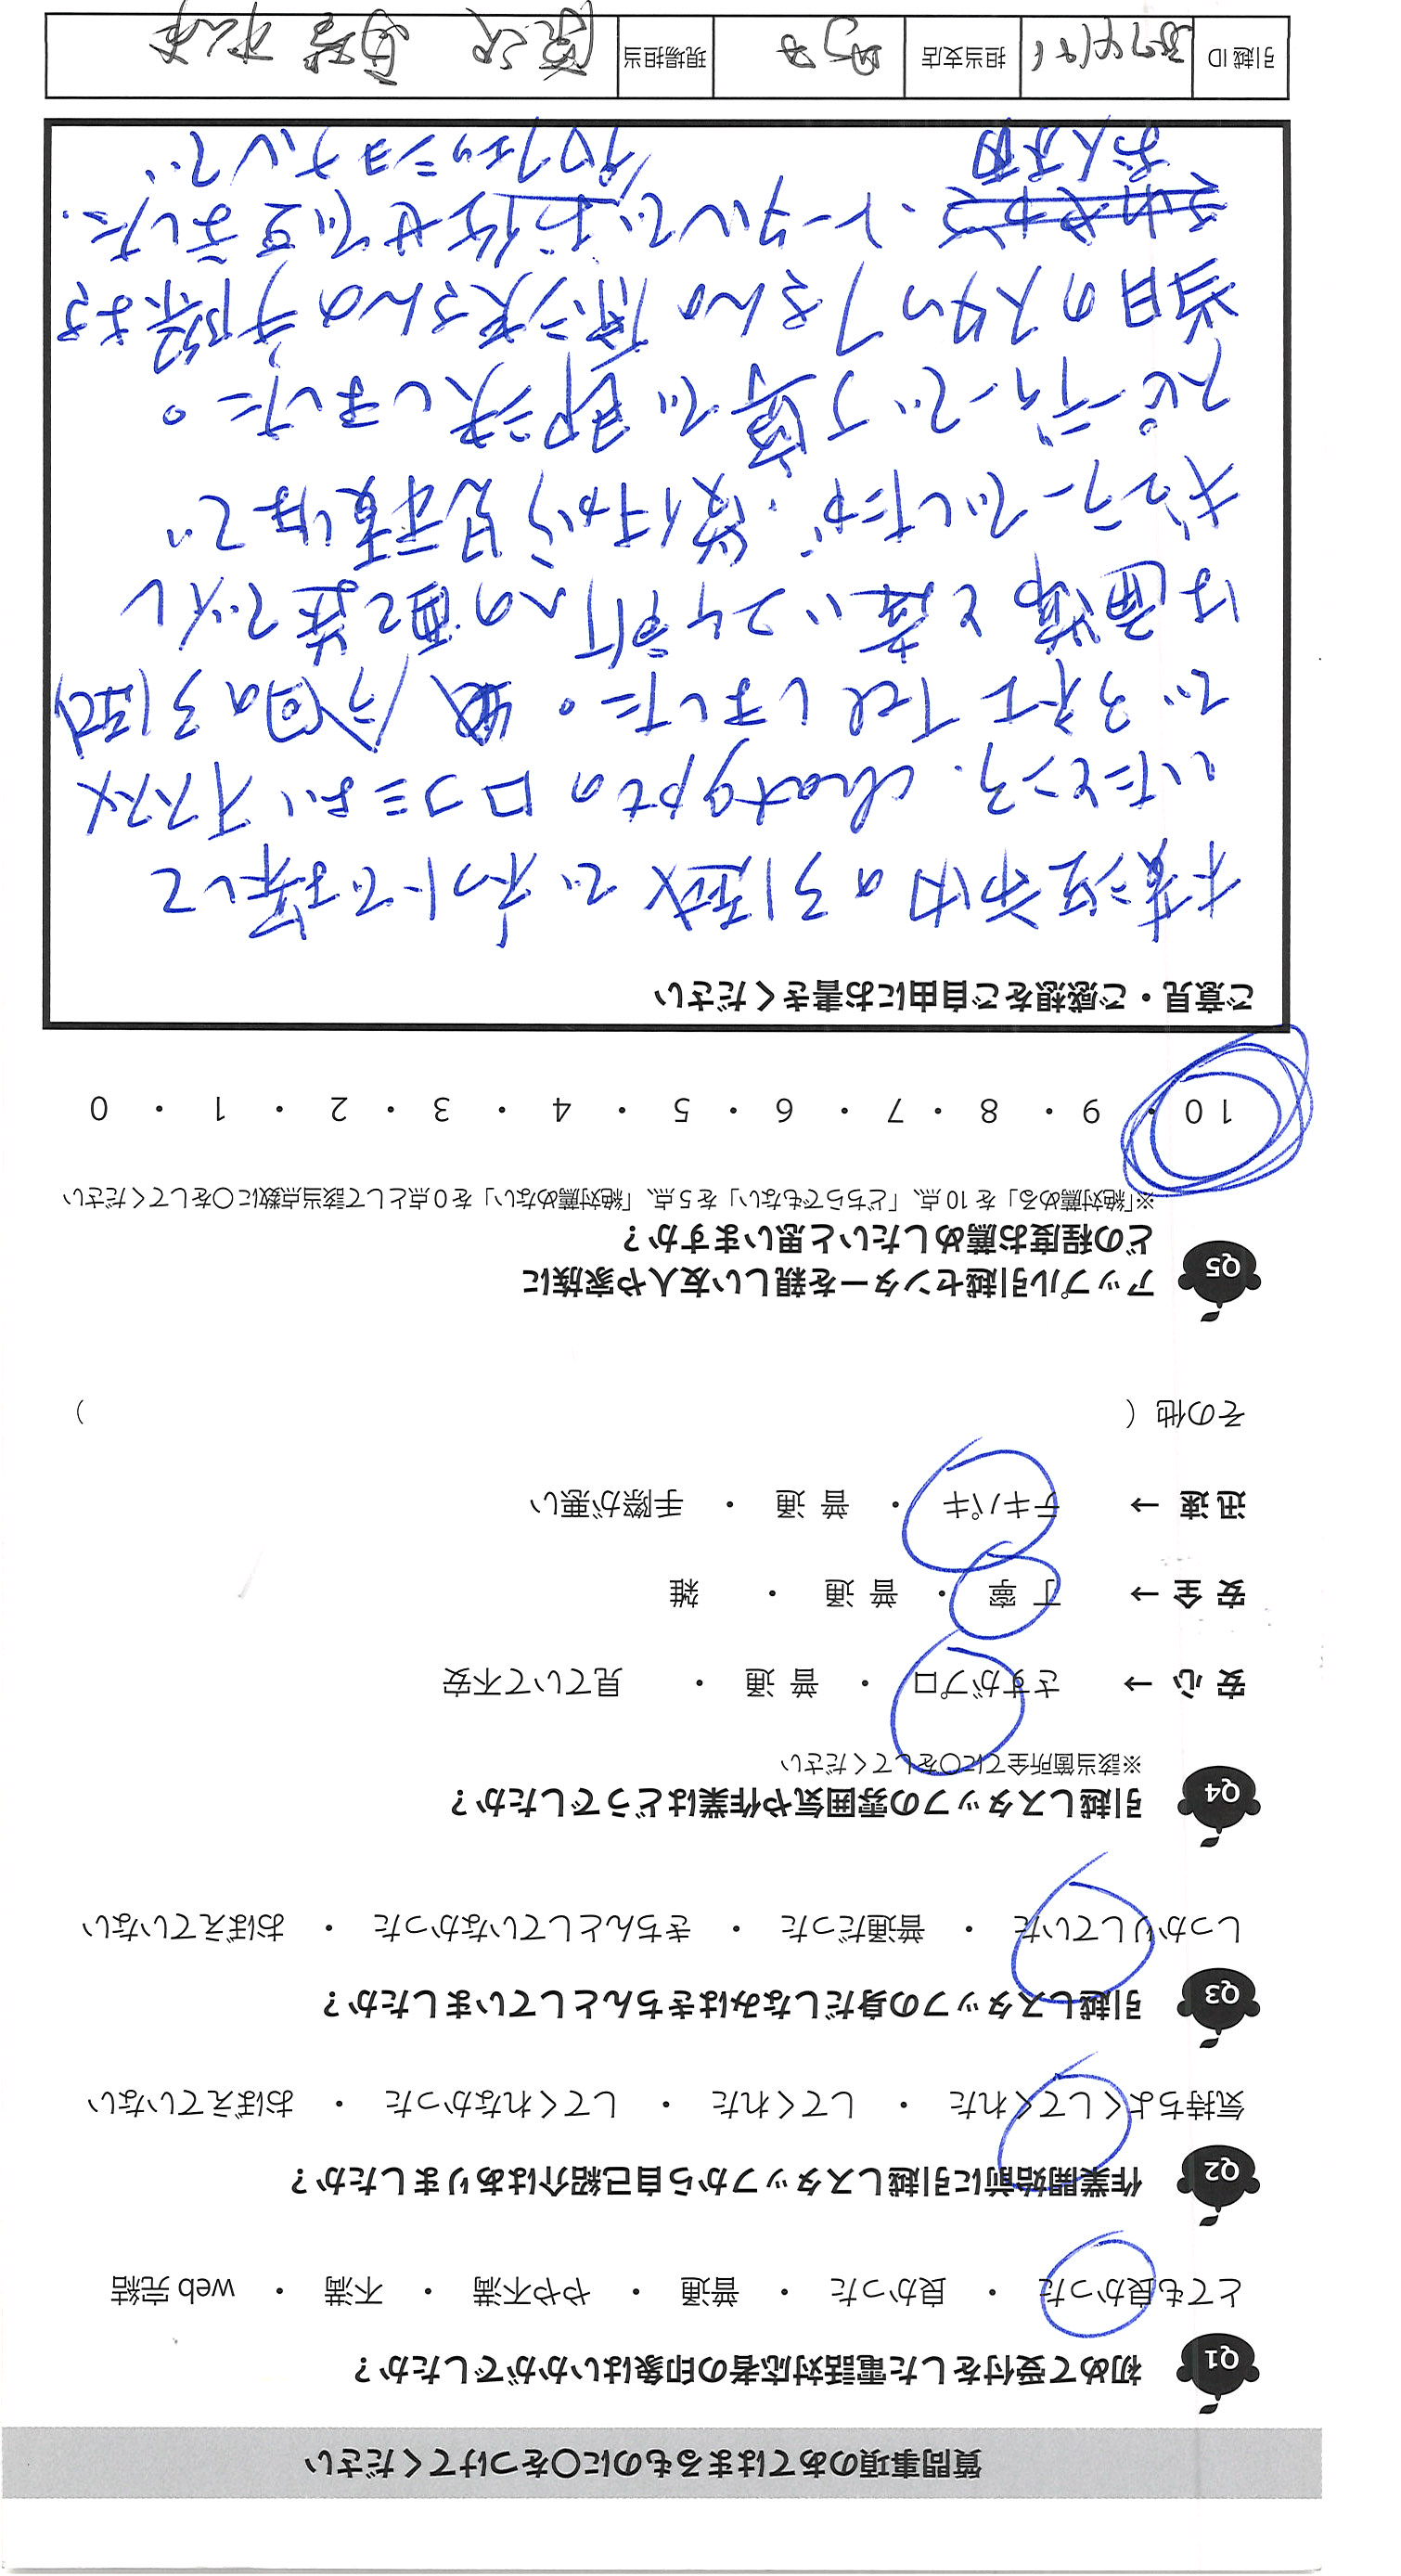 質問事項のあてはまるものに〇をつけてください
Q1 初めて受付をした電話対応者の印象はいかがでしたか？
とても良かった ・ 良かった ・ 普通 ・ やや不満 ・ 不満 ・ web 完結
Q2 作業開始前に引越しスタッフから自己紹介はありましたか？
気持ちよくしてくれた ・ してくれた ・ してくれなかった ・ おぼえていない
Q3 引越しスタッフの身だしなみはきちんとしていましたか？
しっかりしていた ・ 普通だった ・ きちんとしていなかった ・ おぼえていない
Q4 引越しスタッフの雰囲気や作業はどうでしたか？
※該当箇所全てに〇をしてください
安 心 → さすがプロ ・ 普 通 ・ 見ていて不安
安 全 → 丁 寧 ・ 普 通 ・ 雑
迅 速 → テキパキ ・ 普 通 ・ 手際が悪い
その他（ ）
Q5 アップル引越センターを親しい友人や家族に
どの程度お薦めしたいと思いますか？
※「絶対薦める」を 10 点、「どちらでもない」を 5 点、「絶対薦めない」を 0 点として該当点数に〇をしてください
10 ・ 9 ・ 8 ・ 7 ・ 6 ・ 5 ・ 4 ・ 3 ・ 2 ・ 1 ・ 0
ご意見・ご感想をご自由にお書きください
木更津市内の引越でネットで探して
いたところ、chatgptの口コミよりオススメ
で3社Telしました。今回の引越
は面積と違い2ヶ所への配送でイレ
ギュラーでしたが、受付から見積はて
スピーディーで丁寧で即決しました。
当日のスタッフさんの さんの手際よさ
お人柄
トータルでお任せで きました。
プロフェッショナルで
引越 ID 担当支店 現場担当